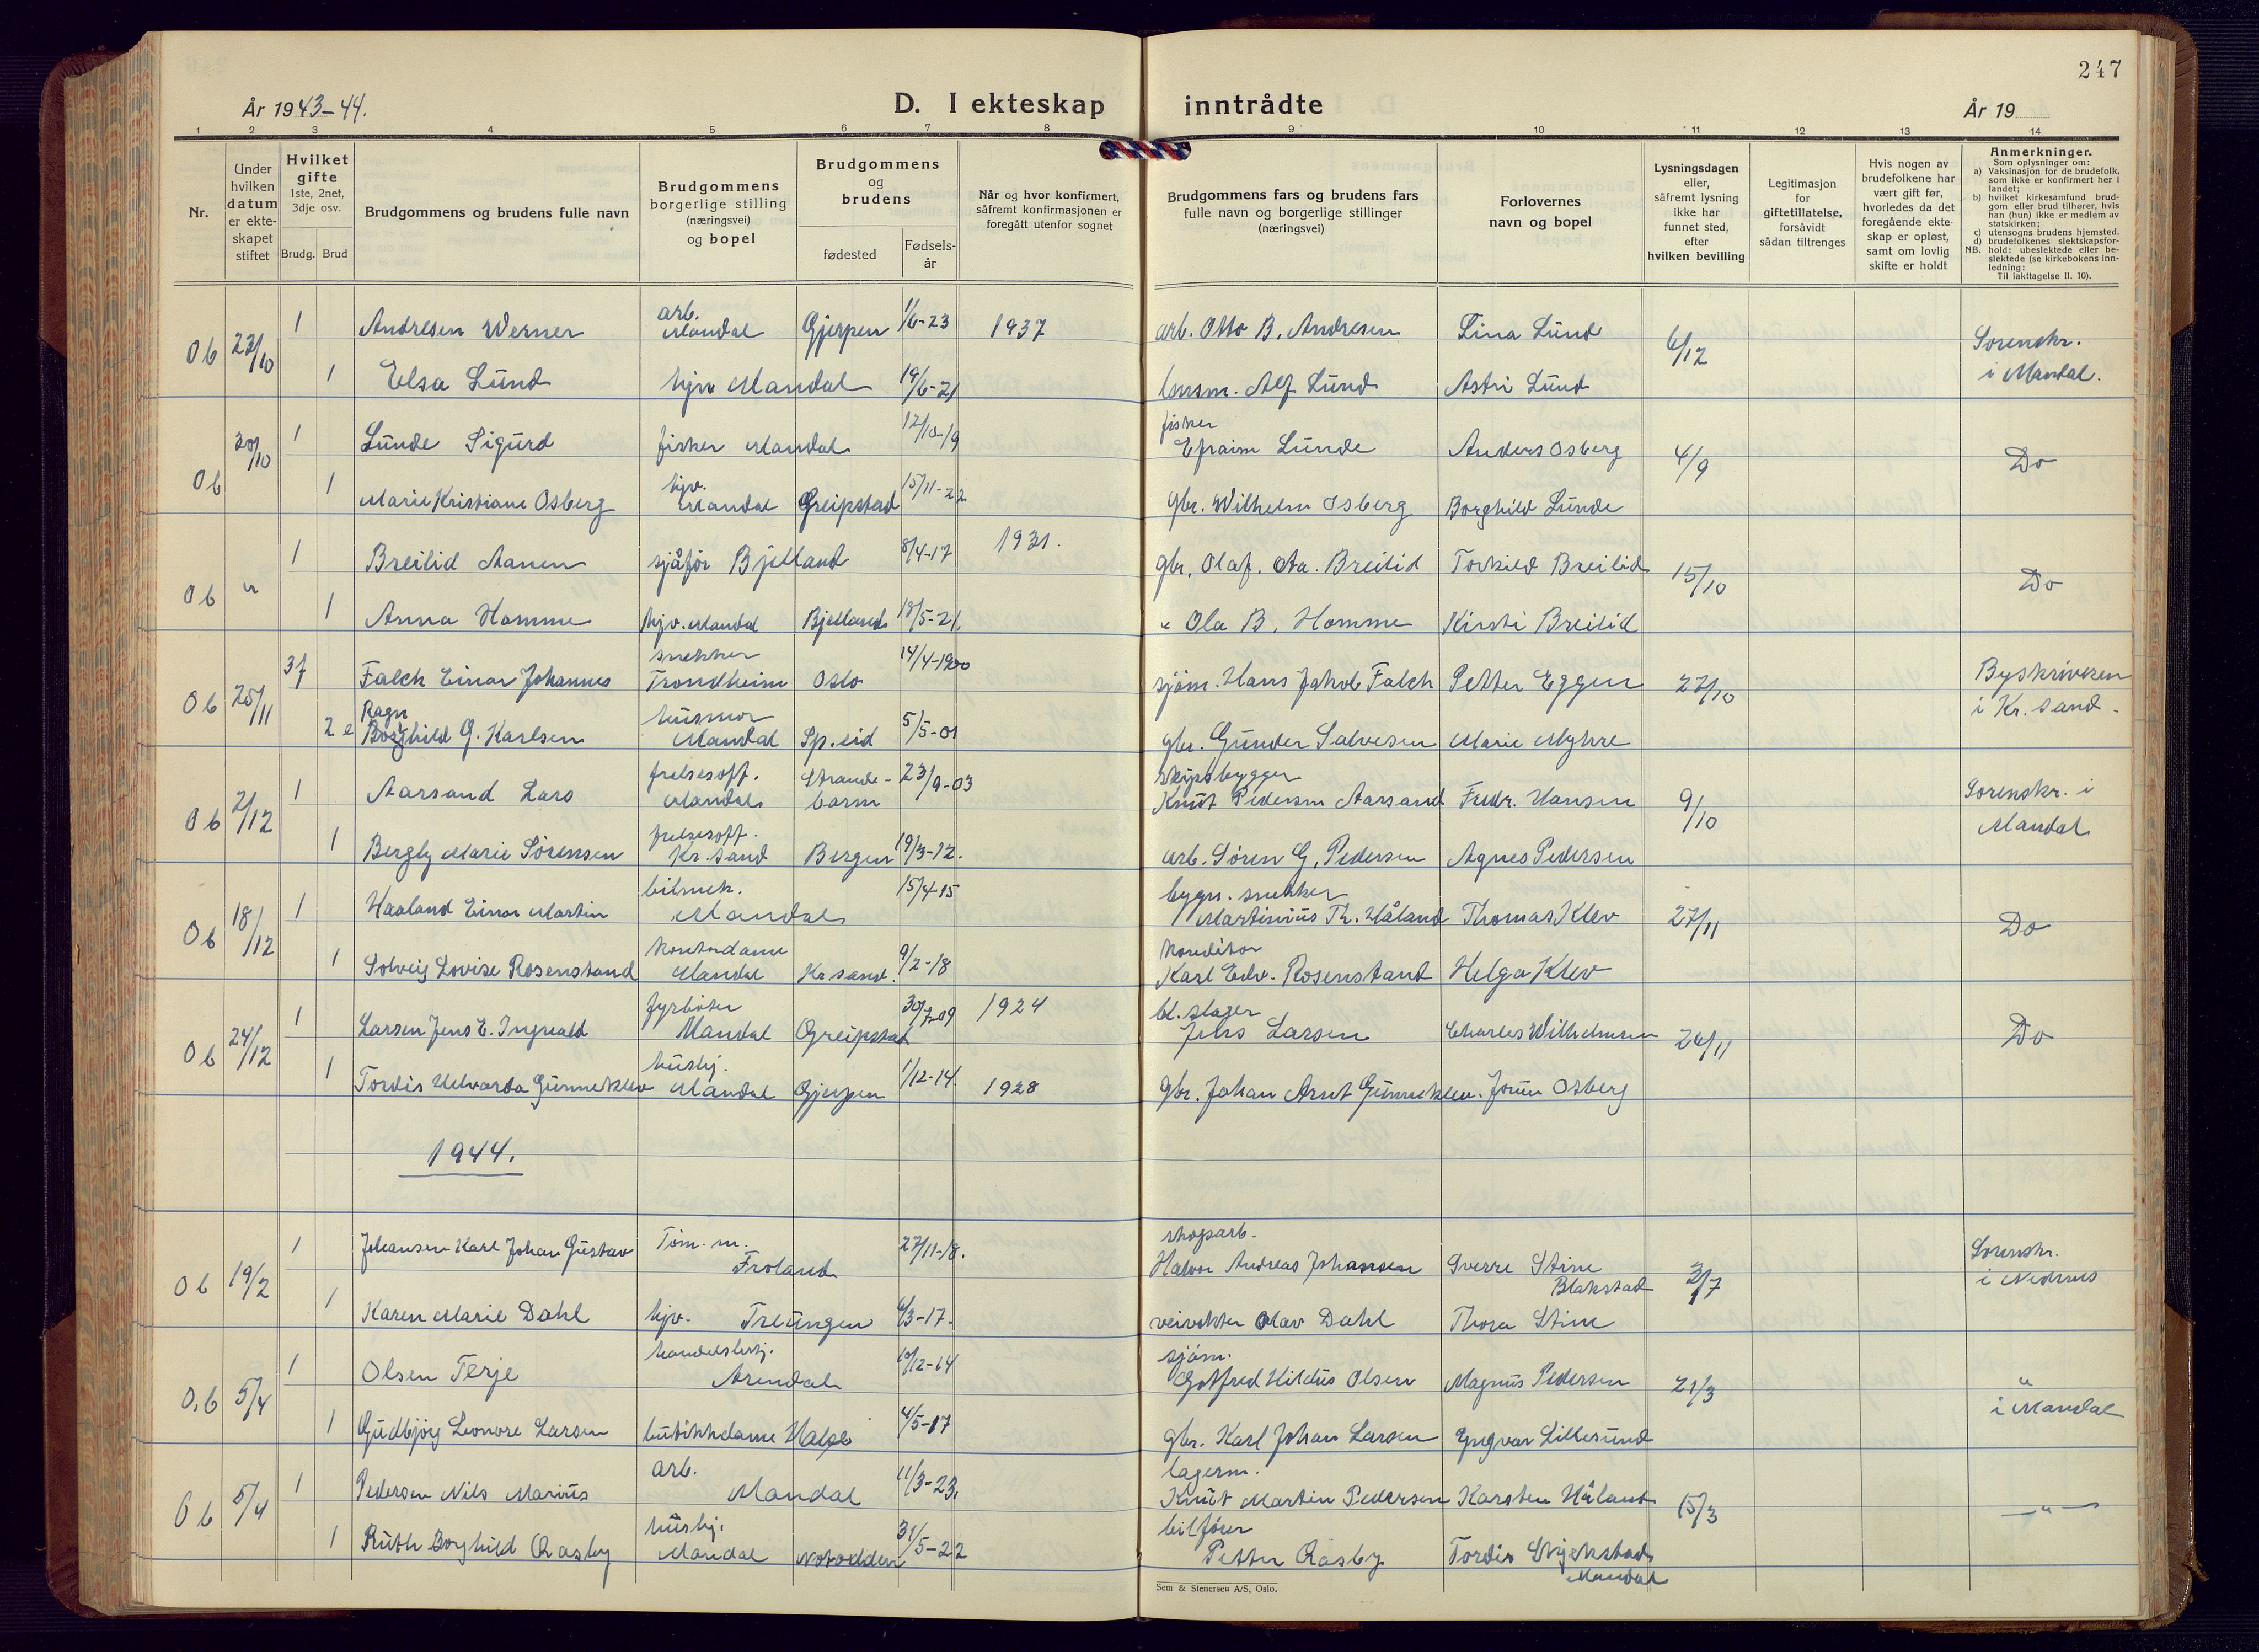 247
År 1943-44.
D. I ekteskap inntrådte
År 19
1 2 3 4 5 6 7 8 9 10 11 12 13 14
Nr.
Under hvilken datum er ekteskapet stiftet
Hvilket gifte 1ste, 2net, 3dje osv.
Brudg. Brud
Brudgommens og brudens fulle navn
Brudgommens borgerlige stilling (næringsvei) og bopel
Brudgommens og brudens
fødested
Fødselsår
Når og hvor konfirmert, såfremt konfirmasjonen er foregått utenfor sognet
Brudgommens fars og brudens fars fulle navn og borgerlige stillinger (næringsvei)
Forlovernes navn og bopel
Lysningsdagen eller, såfremt lysning ikke har funnet sted, efter hvilken bevilling
Legitimasjon for giftetillatelse, forsåvidt sådan tiltrenges
Hvis nogen av brudefolkene har vært gift før, hvorledes da det foregående ekteskap er opløst, samt om lovlig skifte er holdt
Anmerkninger.
Som oplysninger om:
a) Vaksinasjon for de brudefolk, som ikke er konfirmert her i landet;
b) hvilket kirkesamfund brudgom eller brud tilhører, hvis han (hun) ikke er medlem av statskirken;
c) utensogns brudens hjemsted.
d) brudefolkenes slektskapsforhold: ubeslektede eller beslektede (se kirkebokens innledning:
NB.
Til iakttagelse II. 10).
Ob 23/10 1 Andresen Werner arb. Mandal Gjerpen 1/6-23 1937 arb. Otto B. Andresen Lina Lund 6/12 Sorenskr. i Mandal.
1 Elsa Lund hjv Mandal 19/6-21 lensm. Alf Lund Astri Lund
Ob 30/10 1 Lunde Sigurd fisker Mandal 12/10-19 fisker Efraim Lunde Anders Osberg 4/9 Do
1 Marie Kristiane Osberg hjv. Mandal Greipstad 15/11-22 gbr. Wilhelm Osberg Borghild Lunde
Ob " 1 Breilid Aanen sjåfør Bjelland 8/4-17 1931. gbr. Olaf. Aa. Breilid Torkild Breilid 15/10 Do
1 Anna Homme hjv. Mandal Bjelland 18/5-21. " Ola B. Homme Kirsti Breilid
Ob 25/11 3f Falch Einar Johannes snekker Trondheim Oslo 14/4-1900 sjøm. Hans Jakob Falch Petter Eggen 27/10 Byskriveren i Kr.sand.
2 e Ragn Borghild G. Karlsen husmor Mandal Sp.eid 5/5-01 gbr. Gunder Salvesen Marie Myhre
Ob 2/12 1 Aarsand Lars frelsesoff. Mandal Strandebarm 23/9-03 skipsbygger Knut Pedersen Aarsand Fredr. Hansen 9/10 Sorenskr. i Mandal
1 Bergly Marie Sørensen frelsesoff. Kr.sand Bergen 19/3-12. arb. Søren G. Pedersen Agnes Pedersen
Ob 18/12 1 Haaland Einar Martin bilmek. Mandal 15/4-15 bygn. snekker Martinius Th. Håland Thomas Klev 27/11 Do
1 Solveig Lovise Rosenstand Kontordame Mandal Kr.sand. 9/2-18 Konditor Karl Edv. Rosenstand Helga Klev
Ob 24/12 1 Larsen Jens E. Ingvald fyrbøter Mandal Greipstad 30/7-09 1924 bl. slager Jens Larsen Charles Wilhelmsen 26/11 Do
1 Tordis Helvarda Gunneklev hushj. Mandal Gjerpen 1/12-14. 1928 gbr. Johan Arnt Gunneklev. Osberg
1944.
Ob 19/2 1 Johansen Karl Johan Gustav Tøm. m. Froland 27/11-18. skogarb. Halvor Andreas Johansen Sverre Stine Blakstad Sorenskr. i Nedenes
1 Karen Marie Dahl hjv. Treungen 6/3-17. veivokter Olav Dahl Thora Stine
O.b 5/4 1 Olsen Terje handelsbetj. Arendal 10/12-14 sjøm. Gotfred Hildus Olsen Magnus Pedersen 21/3 " i Mandal
1 Gudbjørg Leonore Larsen butikkdame Halse 4/5-17 gbr. Karl Johan Larsen Yngvar Lillesund
Ob 5/4 1 Pedersen Nils Marius arb. Mandal 11/3-23. lagerm. Knut Martin Pedersen Karsten Håland 15/3 — " —
1 Ruth Borghild Raasby hushj. Mandal Notodden 31/5-22 bilfører Petter Råsby Tordis Mandal
Sem & Stenersen A/S, Oslo.